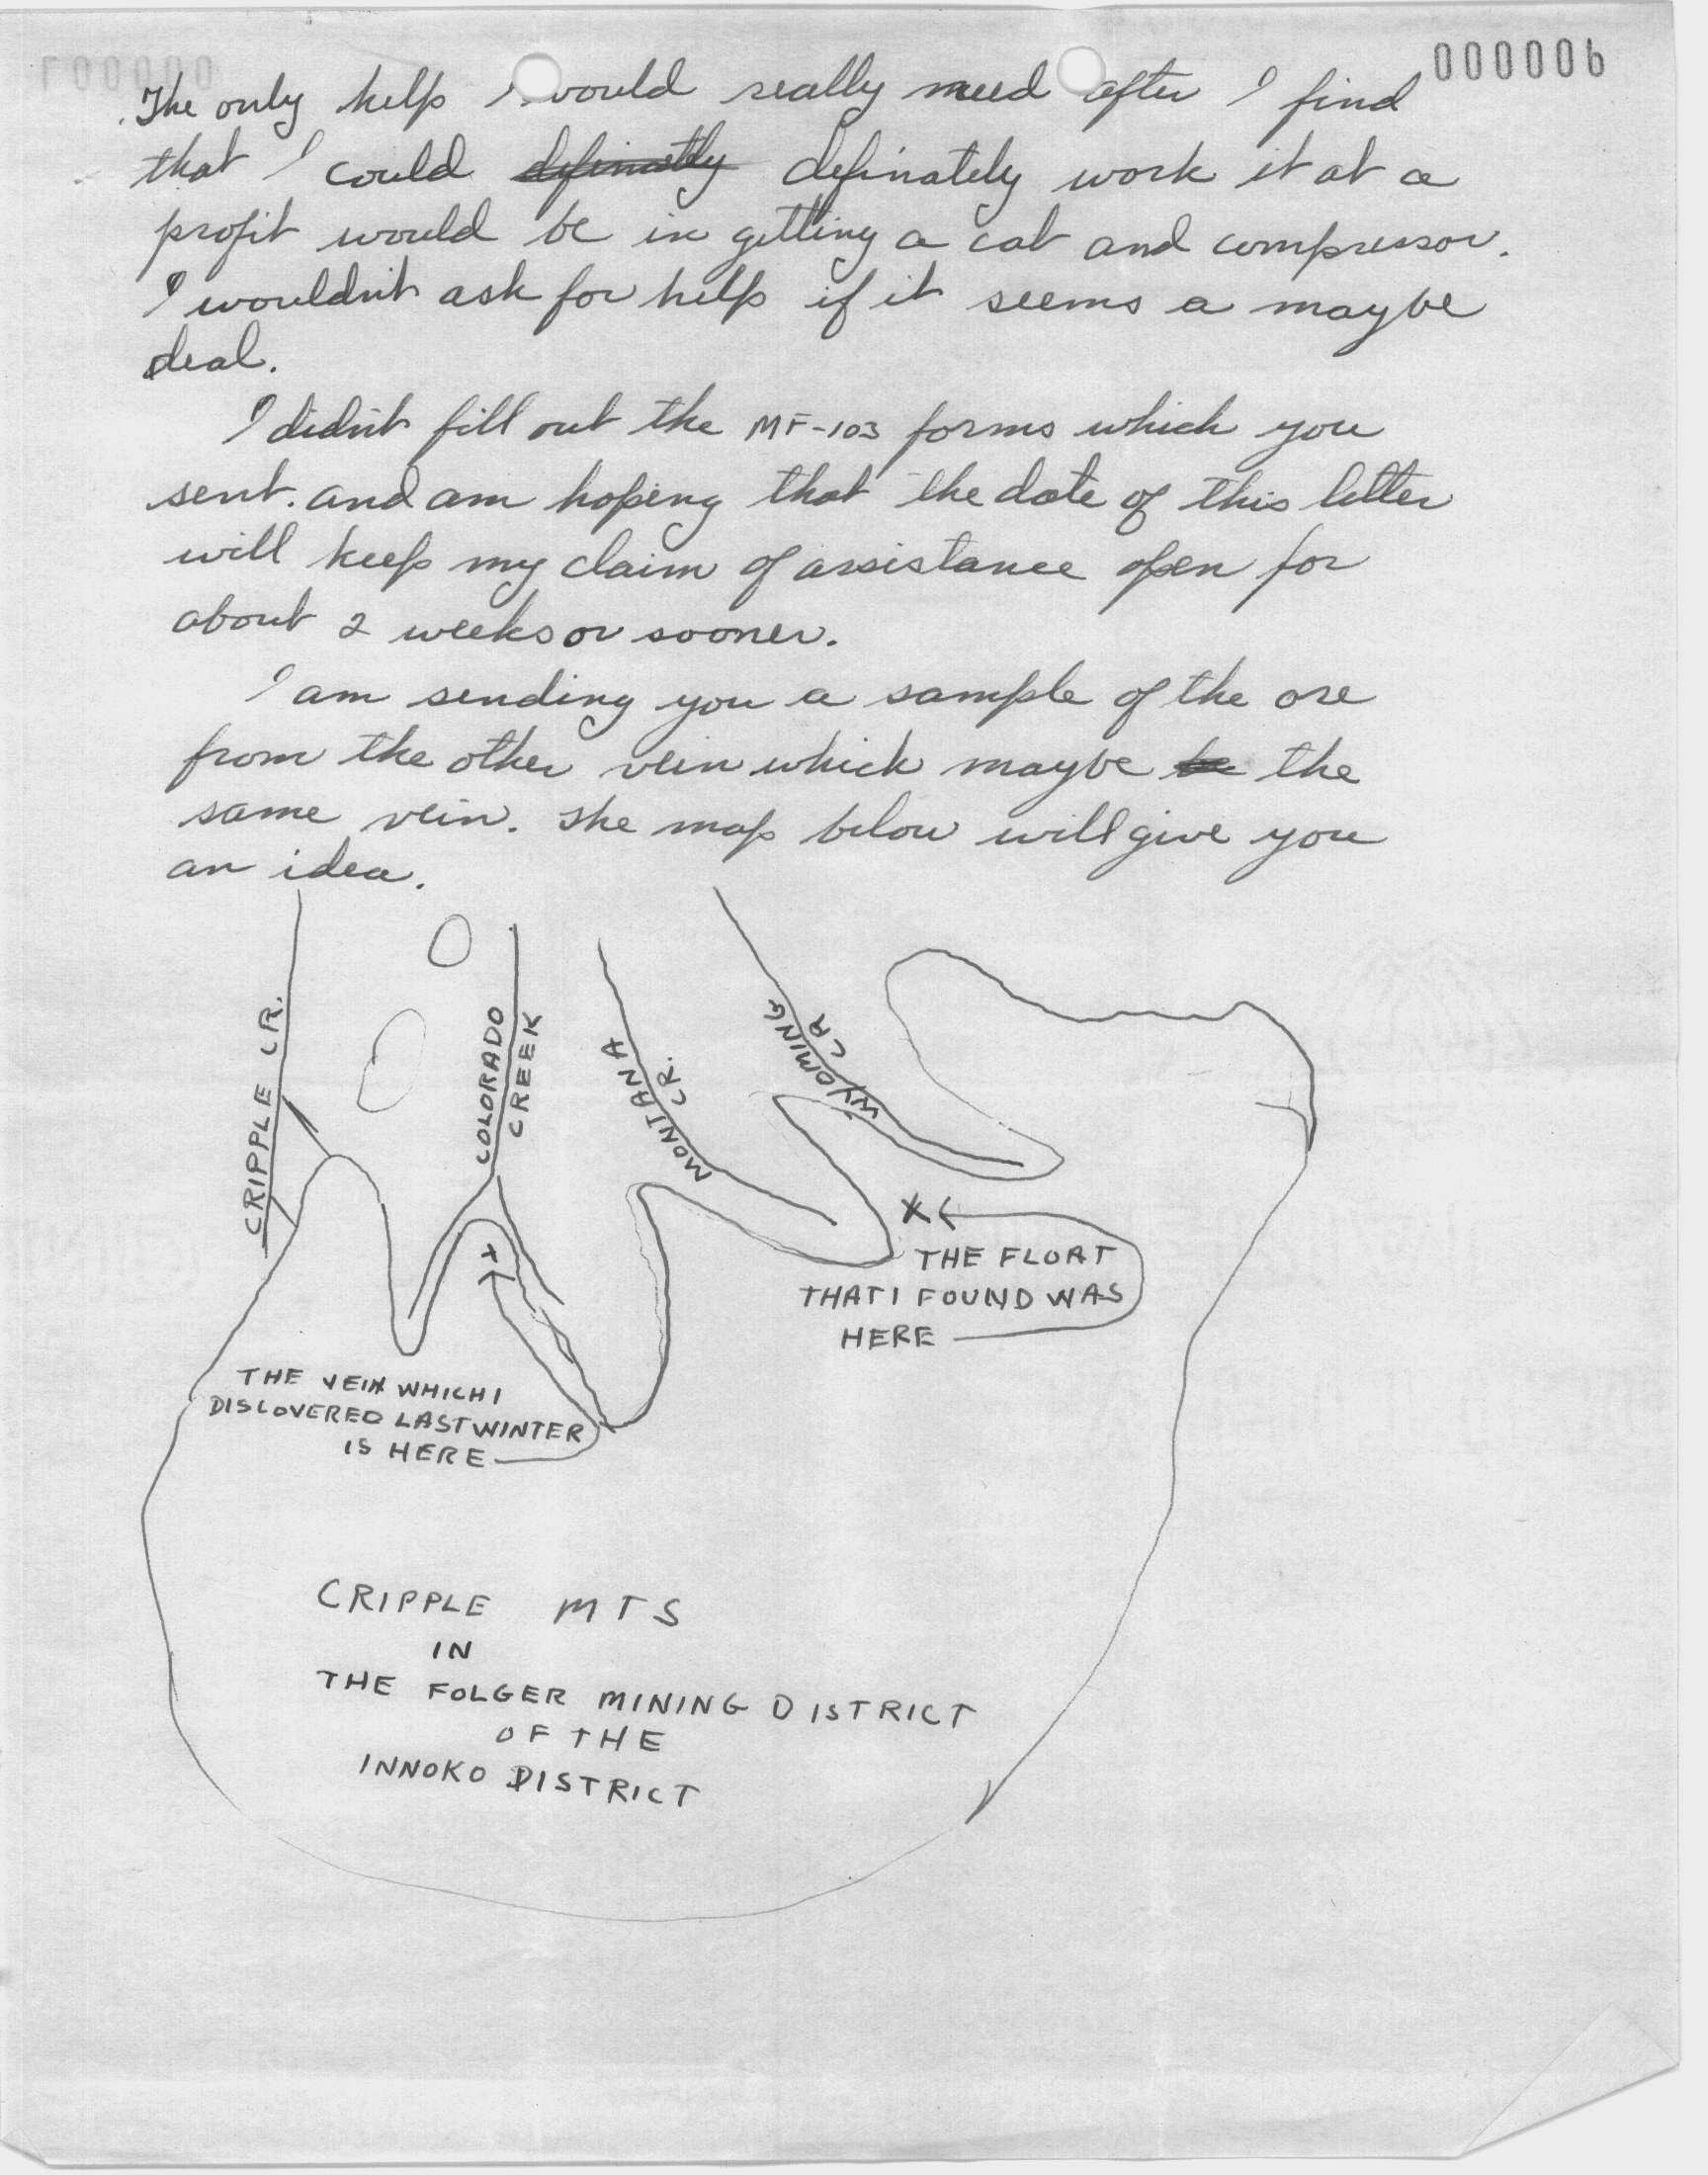 000006
The only help I would really need after I find
that I could definatly definately work it at a
profit would be in getting a cat and compressor.
I wouldn't ask for help if it seems a maybe
deal.
I didn't fill out the MF-103 forms which you
sent. and am hoping that the date of this letter
will keep my claim of assistance open for
about 2 weeks or sooner.
I am sending you a sample of the ore
from the other vein which maybe be the
same vein. The map below will give you
an idea.
CRIPPLE CR.
COLORADO
CREEK
MONTANA
CR.
WYOMING
CR
THE FLOAT
THAT I FOUND WAS
HERE
THE VEIN WHICH I
DISCOVERED LAST WINTER
IS HERE
CRIPPLE MTS
IN
THE FOLGER MINING DISTRICT
OF THE
INNOKO DISTRICT